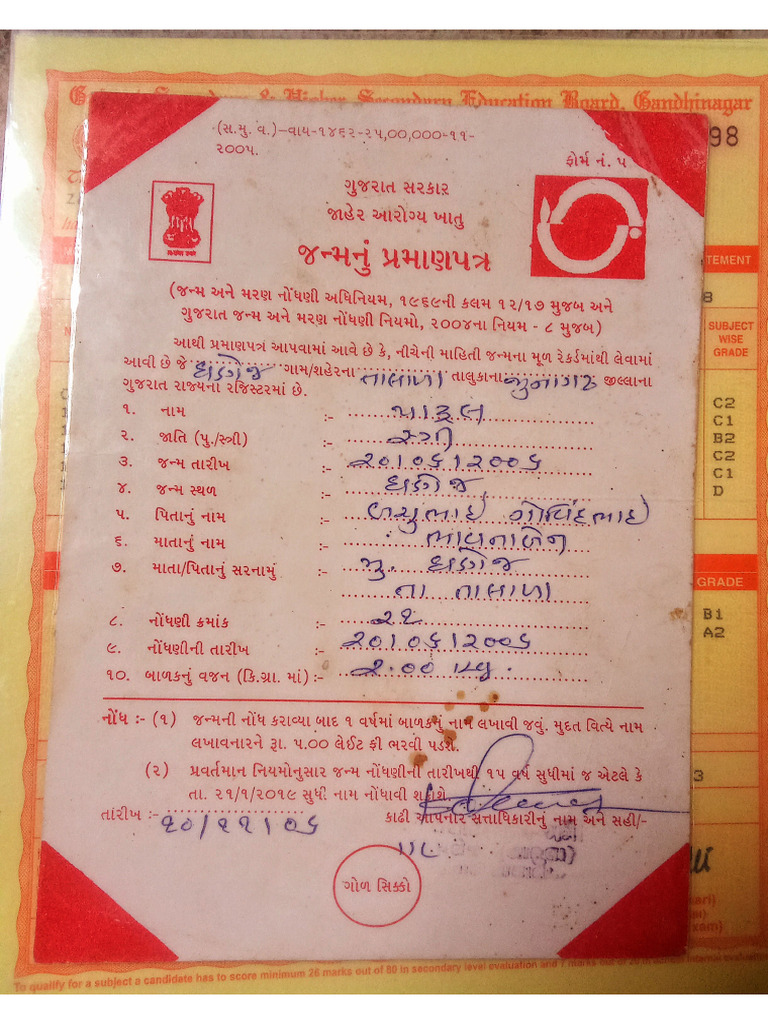 & Higher Secondary Education Board, Gandhinagar
98
(સ.મુ. વ.)–વાય–૧૪૬૨–૨૫,00,000–૧૧–
૨૦૦૫.
ફોર્મ નં. ૫
ગુજરાત સરકાર
જાહેર આરોગ્ય ખાતુ
જન્મનું પ્રમાણપત્ર
(જન્મ અને મરણ નોંધણી અધિનિયમ, ૧૯૬૯ની કલમ ૧૨/૧૭ મુજબ અને
ગુજરાત જન્મ અને મરણ નોંધણી નિયમો, ૨૦૦૪ના નિયમ - ૮ મુજબ)
આથી પ્રમાણપત્ર આપવામાં આવે છે કે, નીચેની માહિતી જન્મના મૂળ રેકર્ડમાંથી લેવામાં
આવી છે જે ધણેજ ગામ/શહેરના તાલાળા તાલુકાના જુનાગઢ જીલ્લાના
ગુજરાત રાજ્યના રજિસ્ટરમાં છે.
૧. નામ :- પારૂલ
૨. જાતિ (પુ./સ્ત્રી) :- સ્ત્રી
૩. જન્મ તારીખ :- ૨૦/૦૬/૨૦૦૬
૪. જન્મ સ્થળ :- ધણેજ
૫. પિતાનું નામ :- બચુભાઇ ગોવિંદભાઇ
૬. માતાનું નામ :- ભાવનાબેન
૭. માતા/પિતાનું સરનામું :- મુ. ધણેજ
તા તાલાળા
૮. નોંધણી ક્રમાંક :- ૨૧
૯. નોંધણીની તારીખ :- ૨૦/૦૬/૨૦૦૬
૧૦. બાળકનું વજન (કિ.ગ્રા. માં) :- ૨.૦૦
નોંધ :- (૧) જન્મની નોંધ કરાવ્યા બાદ ૧ વર્ષમાં બાળકનું નામ લખાવી જવું. મુદત વિત્યે નામ
લખાવનારને રૂા. ૫.૦૦ લેઈટ ફી ભરવી પડશે.
(૨) પ્રવર્તમાન નિયમોનુસાર જન્મ નોંધણીની તારીખથી ૧૫ વર્ષ સુધીમાં જ એટલે કે
તા. ૨૧/૧/૨૦૧૯ સુધી નામ નોંધાવી શકાશે.
તારીખ :- ૧૦/૧૧/૦૬ કાઢી આપનાર સત્તાધિકારીનું નામ અને સહી/-
ગોળ સિક્કો
TEMENT
8
SUBJECT
WISE
GRADE
C2
C1
B2
C2
C1
D
GRADE
B1
A2
3
To qualify for a subject a candidate has to score minimum 26 marks out of 80 in secondary level evaluation and 7 marks out of